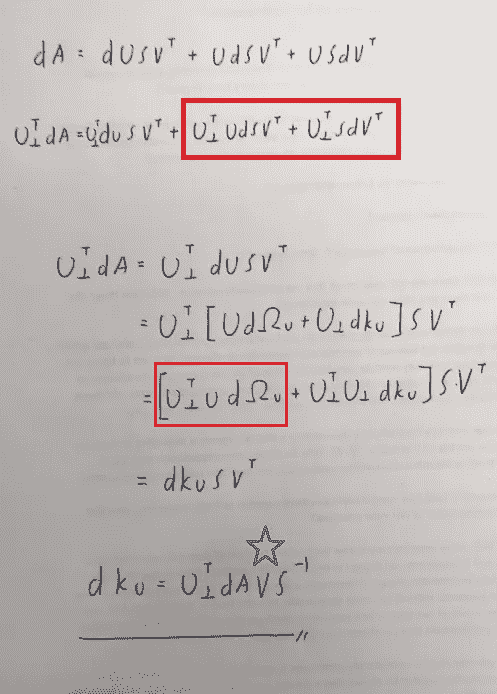 dA = dUSVᵀ + UdSVᵀ + USdVᵀ
U⊥ᵀdA = U⊥ᵀdUSVᵀ + U⊥ᵀUdSVᵀ + U⊥ᵀSdVᵀ
U⊥ᵀdA = U⊥ᵀdUSVᵀ
= U⊥ᵀ[UdΩᵤ + U⊥dkᵤ]SVᵀ
= [U⊥ᵀUdΩᵤ + U⊥ᵀU⊥dkᵤ]S·Vᵀ
= dkᵤSVᵀ
dkᵤ = U⊥ᵀdAVS⁻¹